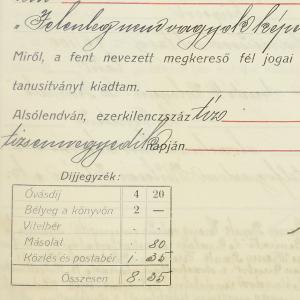 „Jelenleg nem vagyok
Miről, a fent nevezett megkereső fél jogai
tanusitványt kiadtam.
Alsólendván, ezerkilenczszáz tizen
napján.
Díjjegyzék:
Óvásdíj 4 20
Bélyeg a könyvön 2 —
Vitelbér . .
Másolat . 80
Közlés és postabér 1 35
Összesen 8 35